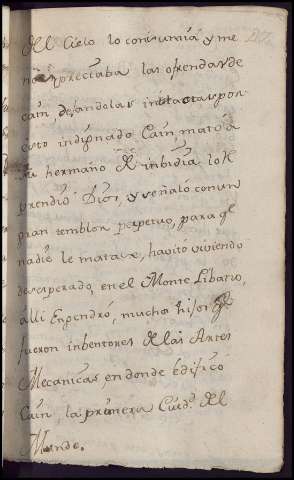 del Cielo lo consumia, y me
nos preciaba las ofrendas de
cain dejandolas intactas, por
esto indignado Cain, mato â
su hermano de inbidia, lo Re
prendiô Dios, y señalô con un
gran temblor perpetuo, para qe
nadie le matase, havitô viviendo
desesperado, en el Monte Libano,
alli Engendró, muchos hijos qe
fueron inbentores de las Artes
Mecanicas en donde edificô
Cain la primera Ciudd. del
Mundo.